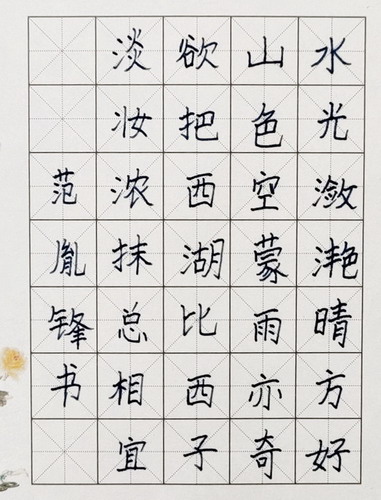 水光潋滟晴方好
山色空蒙雨亦奇
欲把西湖比西子
淡妆浓抹总相宜
范胤锋书